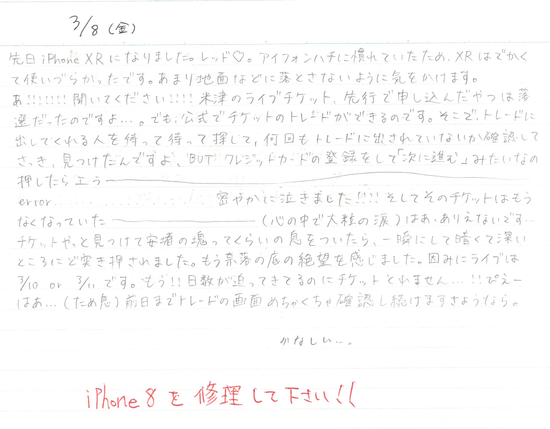 3/8 (金)
先日iPhone XRになりました。レッド♡。アイフォンハチに慣れていたため、XRはでかく
て使いづらかったです。あまり地面などに落とさないように気をかけます。
あ!!!!!!! 聞いてください!!!! 米津のライブチケット、先行で申し込んだやつは落
選だったのですよ...。でも、公式でチケットのトレードができるのです。そこで、トレードに
出してくれる人を待って待って探して、何回もトレードに出されていないか確認して
さっき、見つけたんですよ、"BUT"クレジットカードの登録をして「次に進む」みたいなの
押したらエラー
error.................... 密やかに泣きました!!!! そしてそのチケットはもう
なくなっていた (心の中で大粒の涙)はあ、ありえないです...
チケットやっと見つけて安堵の塊ってくらいの息をついたら、一瞬にして暗くて深い
ところにど突き押されました。もう奈落の底の絶望を感じました。因みにライブは
3/10 or 3/11です。もう!!日数が迫ってきてるのにチケットとれません...!!ぴえー
はあ...(ため息)前日までトレードの画面めちゃくちゃ確認し続けますさようなら。
かなしい...。
iPhone 8を修理して下さい!!